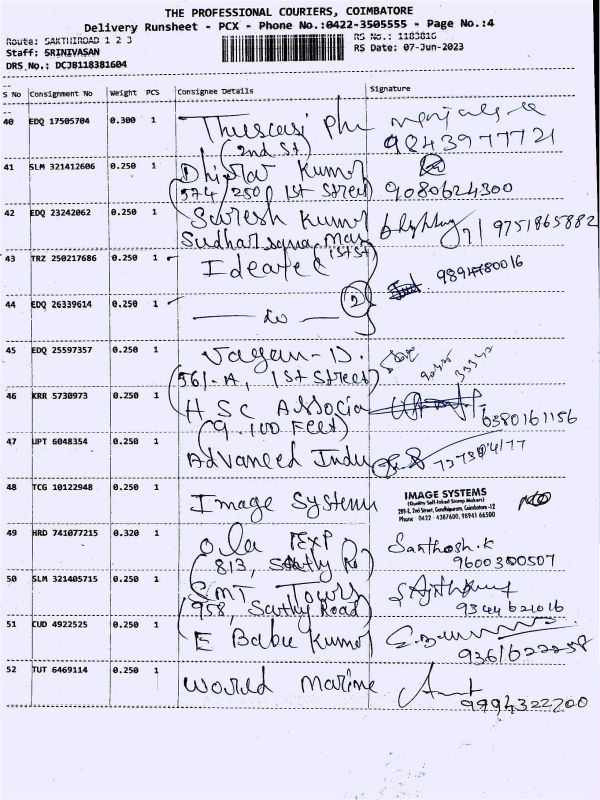 THE PROFESSIONAL COURIERS, COIMBATORE
Delivery Runsheet - PCX - Phone No.:0422-3505555 - Page No.:4
Route: SAKTHIROAD 1 2 3
RS No.: 1183816
Staff: SRINIVASAN
RS Date: 07-Jun-2023
DRS No.: DCJB118381604
S No Consignment No Weight PCS Consignee Details Signature
40 EDQ 17505704 0.300 1
(2nd St) 9843977721
41 SLM 321412606 0.250 1 Kumar
(574/250, 1st Street) 9080624300
42 EDQ 23242062 0.250 1 Suresh Kumar 9751865882
Sudharsana
(1st St)
43 TRZ 250217686 0.250 1 9894780016
44 EDQ 26339614 0.250 1 do 2
45 EDQ 25597357 0.250 1 D.
(561-A, 1st Street)
46 KRR 5730973 0.250 1 HSC Associa 6380161156
(9. 100 Feet)
47 UPT 6048354 0.250 1 Advanced Indu
48 TCG 10122948 0.250 1 Image System
IMAGE SYSTEMS
(Quality Self-Inked Stamp Makers)
289-L, 2nd Street, Gandhipuram, Coimbatore -12
Phone 0422 - 4387600, 98941 66500
49 HRD 741077215 0.320 1 Ola EXP Santhosh.K
(813, Sathy Rd) 9600300507
50 SLM 321405715 0.250 1 SMT Tours
(958, Sathy Road) 9344621016
51 CUD 4922525 0.250 1 E Babu Kumar
9361622258
52 TUT 6469114 0.250 1 World Marine
9994322200